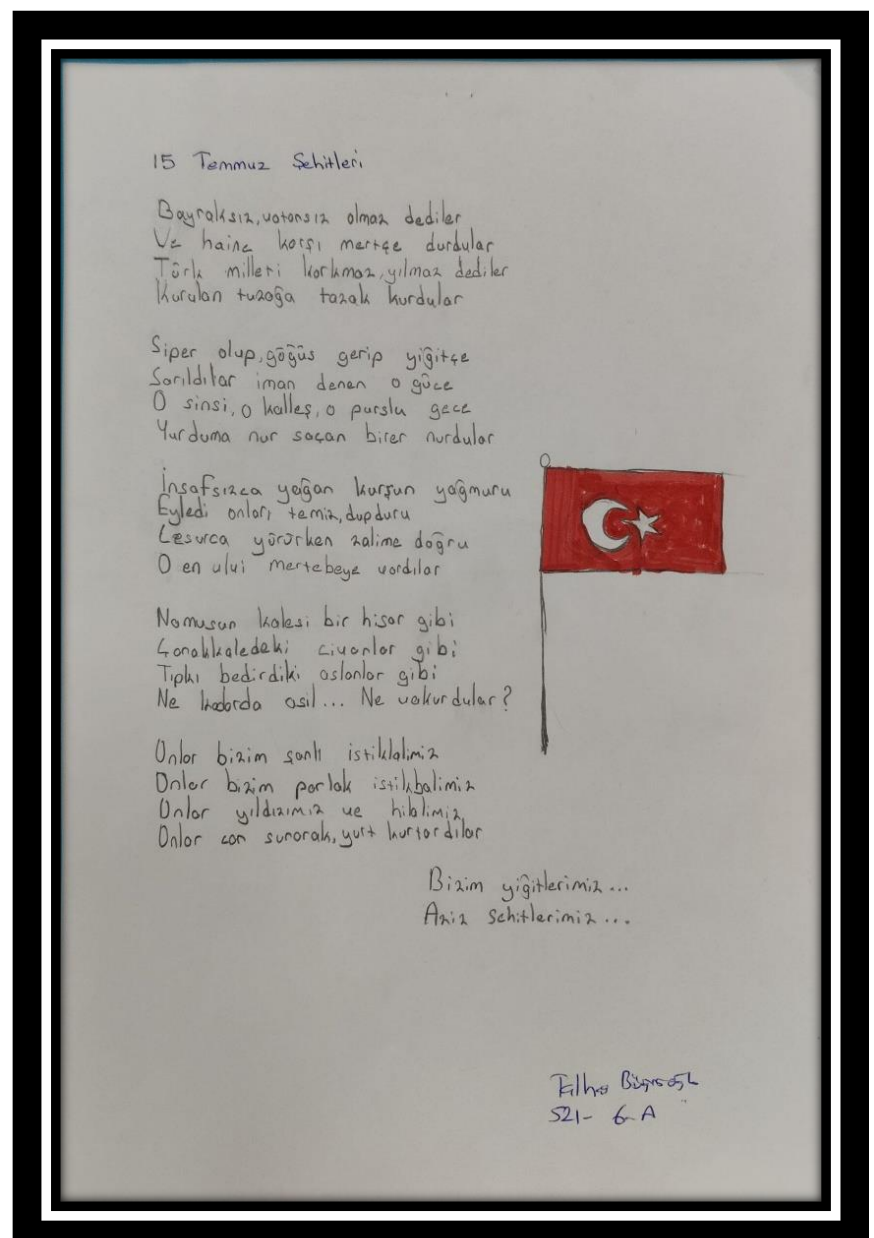 15 Temmuz Şehitleri
Bayraksız, vatansız olmaz dediler
Ve haine karşı mertçe durdular
Türk milleti korkmaz, yılmaz dediler
Kurulan tuzağa tazak kurdular
Siper olup, göğüs gerip yiğitçe
Sarıldılar iman denen o güce
O sinsi, o kalleş, o puslu gece
Yurduma nur saçan birer nurdular
İnsafsızca yağan kurşun yağmuru
Eyledi onları temiz, dupduru
Cesurca yürürken zalime doğru
O en ulvi mertebeye vardılar
Namusun kalesi bir hisar gibi
Çanakkaledeki civanlar gibi
Tıpkı bedirdiki aslanlar gibi
Ne kadarda asil... Ne vakurdular?
Onlar bizim şanlı istiklalimiz
Onlar bizim parlak istikbalimiz
Onlar yıldızımız ve hilalimiz
Onlar can sunarak, yurt kurtardılar
Bizim yiğitlerimiz...
Aziz şehitlerimiz...
Talha
521- 6-A